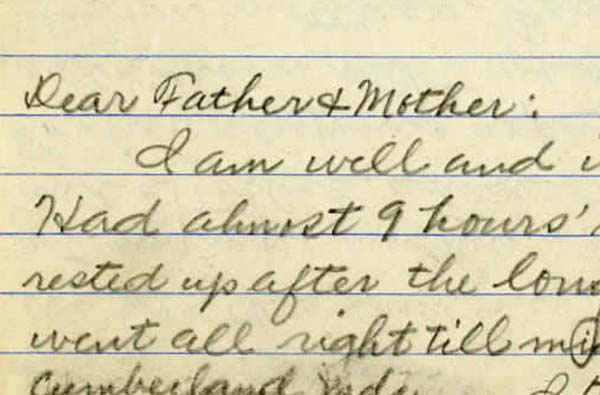 Dear Father & Mother:
I am well and
Had almost 9 hours'
rested up after the
went all right till
Cumberland Md.